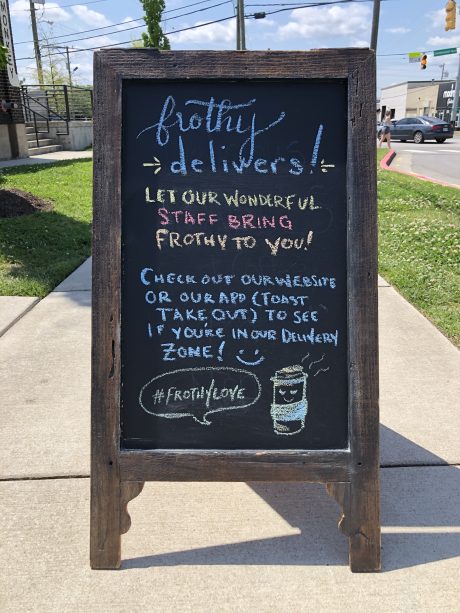 frothy
delivers!
LET OUR WONDERFUL
STAFF BRING
FROTHY TO YOU!
CHECK OUT OUR WEBSITE
OR OUR APP (TOAST
TAKE OUT) TO SEE
IF YOU'RE IN OUR DELIVERY
ZONE!
#FROTHYLOVE